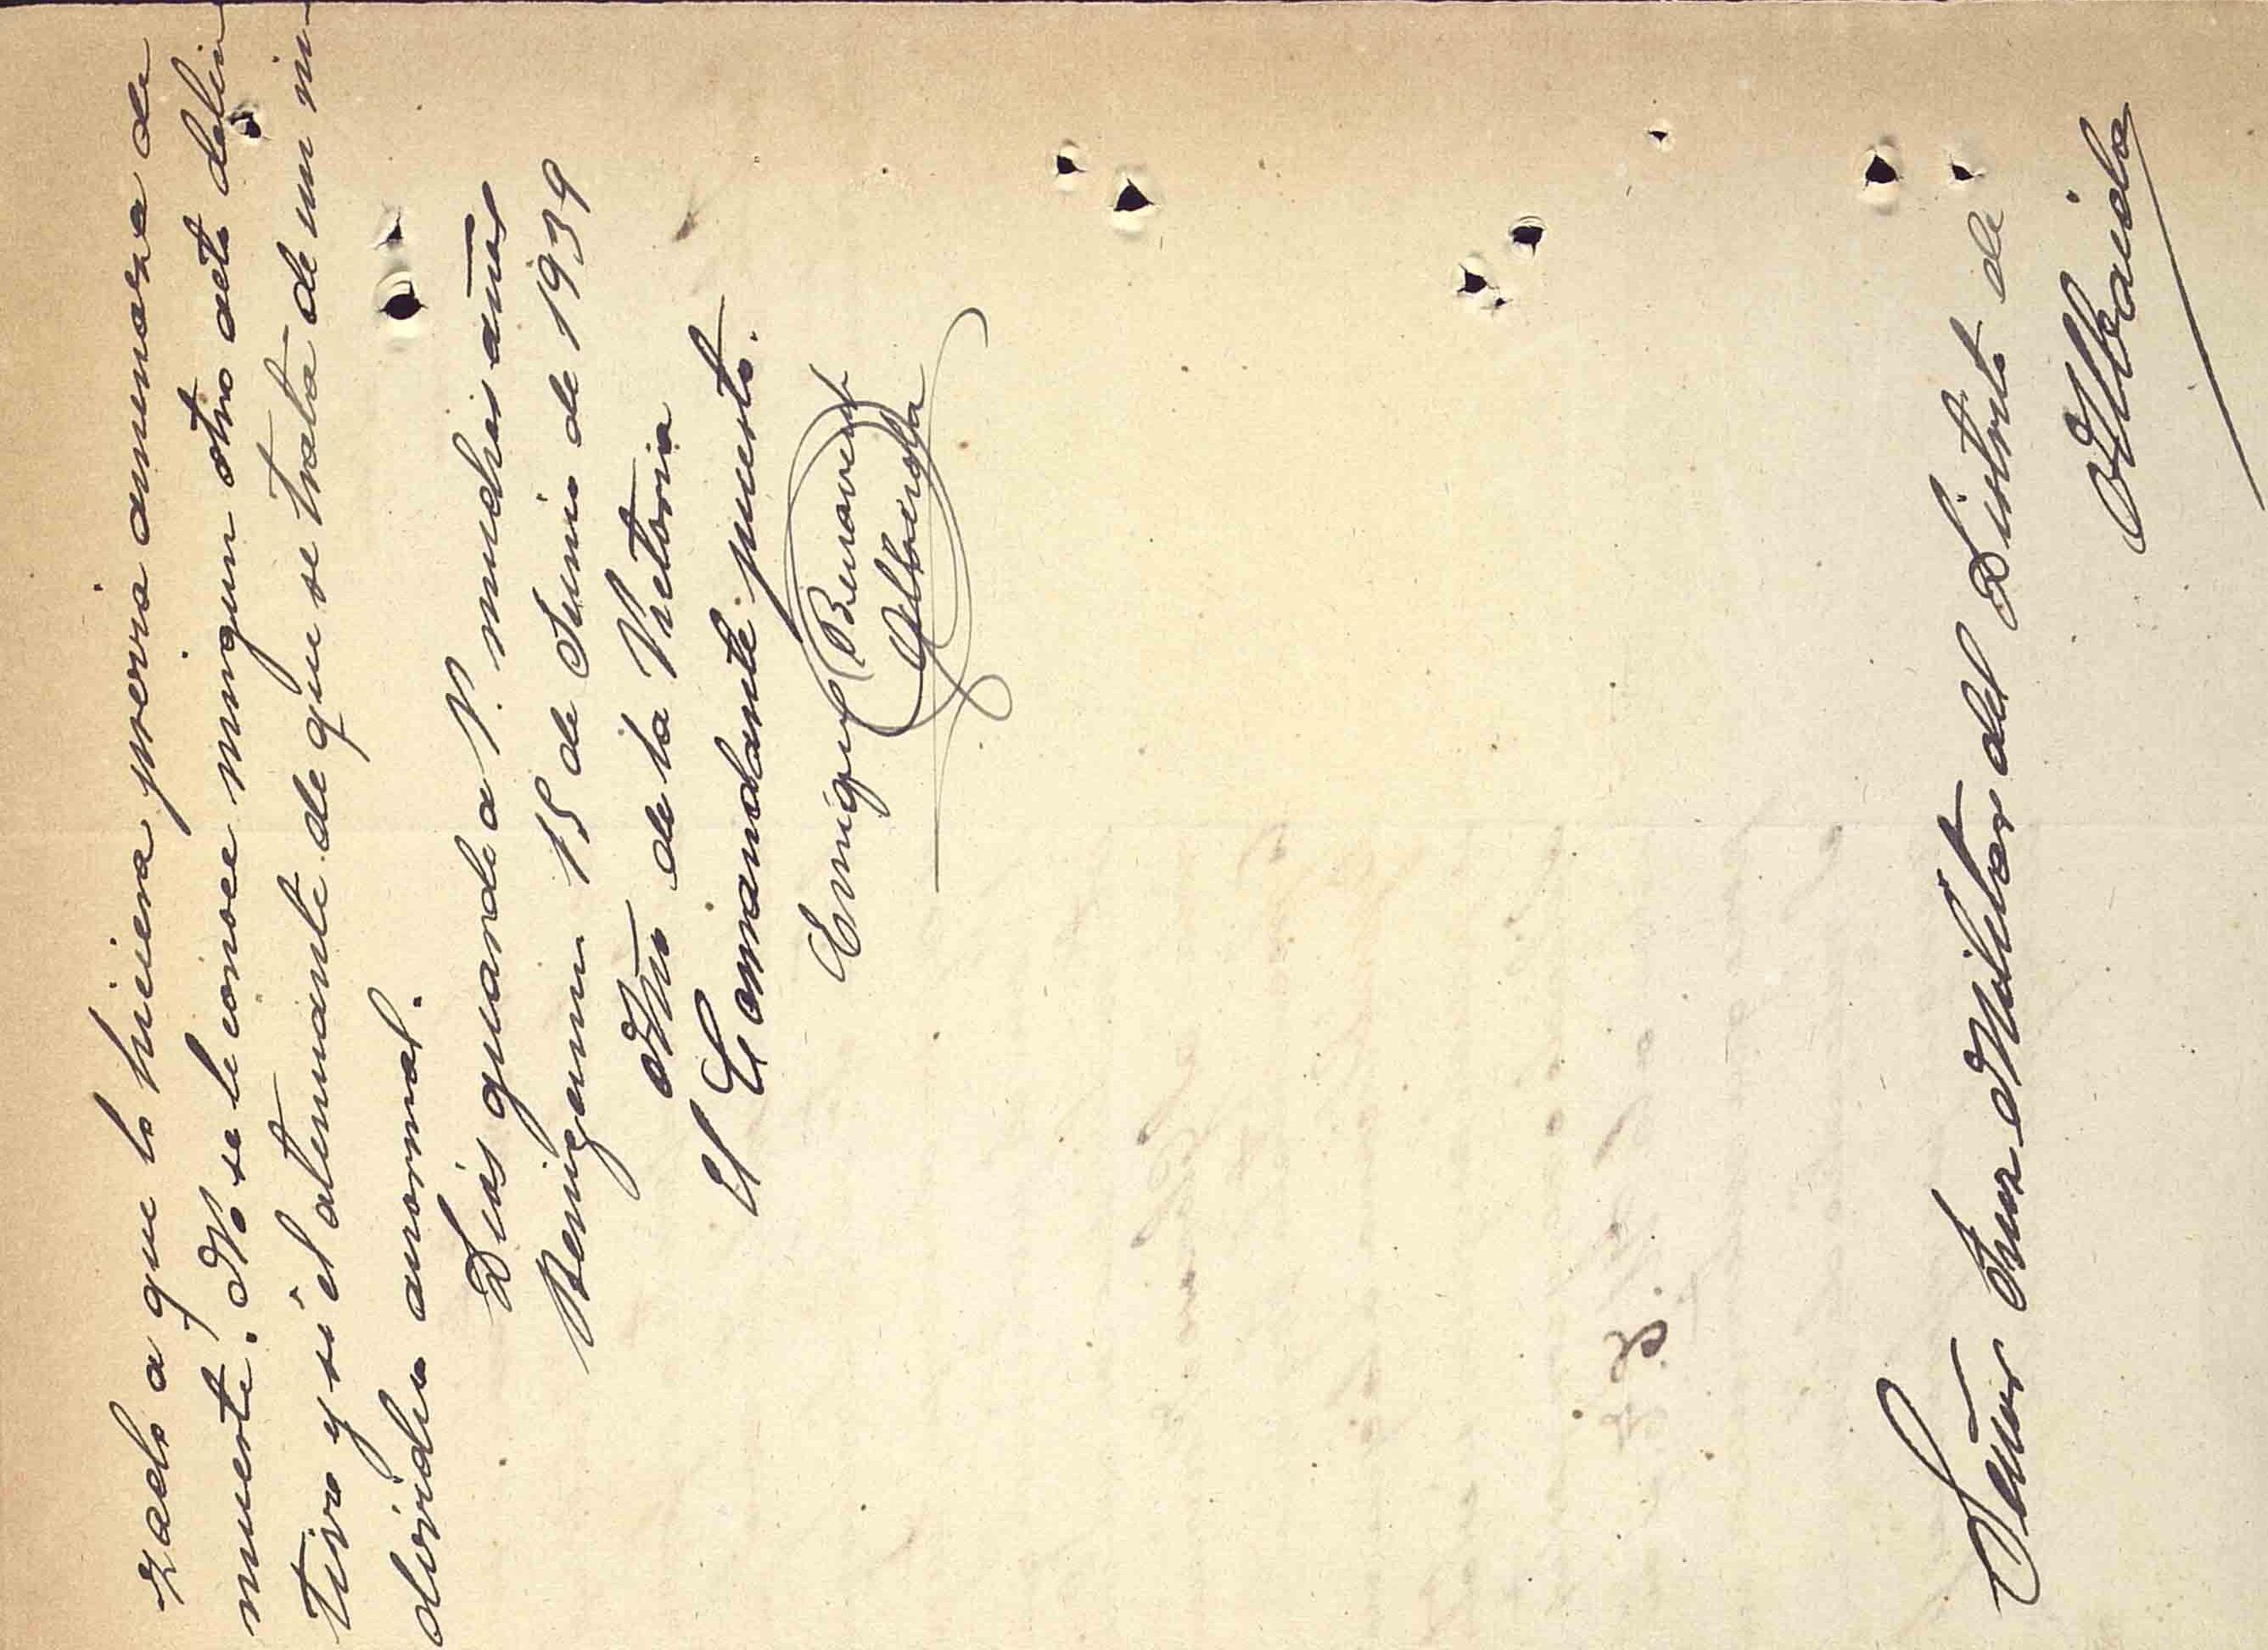 zado a que lo hiciera previa amenaza de
muerte. No se le conoce ningun otro acto delic
tivo y si el atenuante de que se trata de un in
dividuo anormal.
Dios guarde a V. muchos años
Benigamin 15 de Junio de 1939
Año de la Victoria
El Comandante puesto.
Enrique Benavent
Señor Juez Militar del Distrito de
Albaida